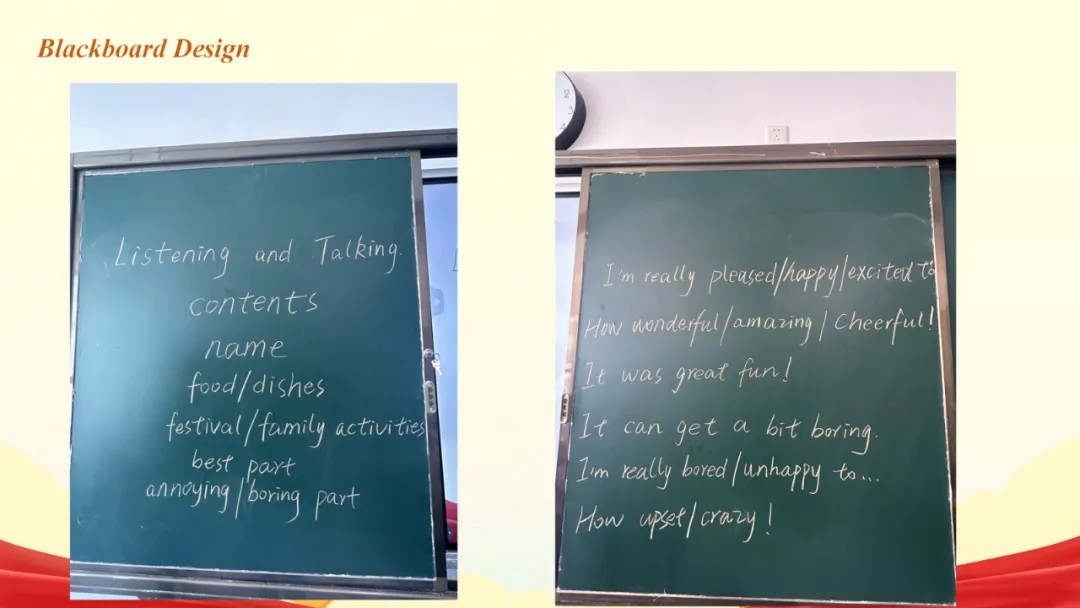 Blackboard Design
Listening and Talking.
contents
name
food/dishes
festival/family activities
best part
annoying/boring part
2
3
4
I'm really pleased/happy/excited to
How wonderful/amazing/Cheerful!
It was great fun!
It can get a bit boring.
I'm really bored/unhappy to...
How upset/crazy!